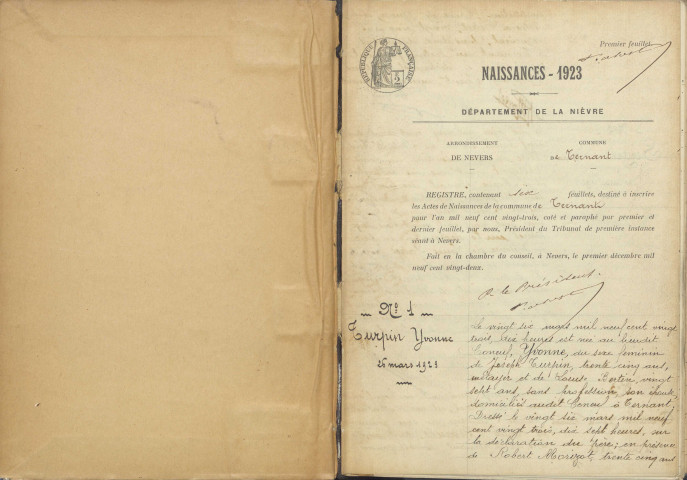 Premier feuillet
RÉPUBLIQUE FRANÇAISE
NAISSANCES - 1923
DÉPARTEMENT DE LA NIÈVRE
ARRONDISSEMENT
DE NEVERS
COMMUNE
DE Ternant
REGISTRE, contenant six feuillets, destiné à inscrire
les Actes de Naissances de la commune de Ternant
pour l'an mil neuf cent vingt-trois, coté et paraphé par premier et
dernier feuillet, par nous, Président du Tribunal de première instance
séant à Nevers.
Fait en la chambre du conseil, à Nevers, le premier décembre mil
neuf cent vingt-deux.
P. le Président.
No 1
Turpin Yvonne
26 mars 1923
Le vingt six mars mil neuf cent vingt
trois, dix heures est née au lieudit
Yvonne, du sexe féminin
de Joseph Turpin, trente cinq ans,
métayer et de Louise Bertin, vingt
sept ans, sans profession, son épouse,
domiciliés audit à Ternant;
Dressé le vingt six mars mil neuf
cent vingt trois, dix sept heures, sur
la déclaration du père; en présence
de Robert Morizot, trente cinq ans